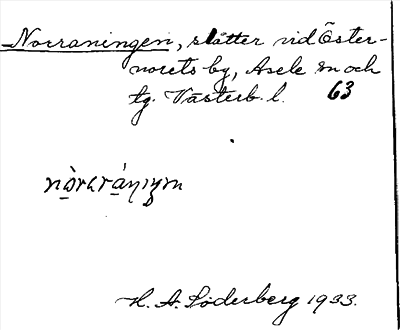 Norraningen, slåtter vid Öster-
norets by, Åsele sn och
tg. Västerb. l. 63
H. A. Söderberg 1933.